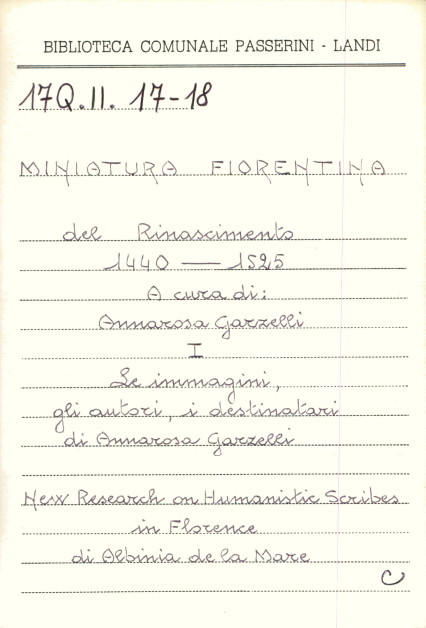 BIBLIOTECA COMUNALE PASSERINI - LANDI
17Q.II. 17-18
MINIATURA FIORENTINA
del Rinascimento
1440 — 1525
A cura di:
Annarosa Garzelli
I
Le immagini,
gli autori, i destinatari
di Annarosa Garzelli
New Research on Humanistic Scribes
in Florence
di Albinia de la Mare
C